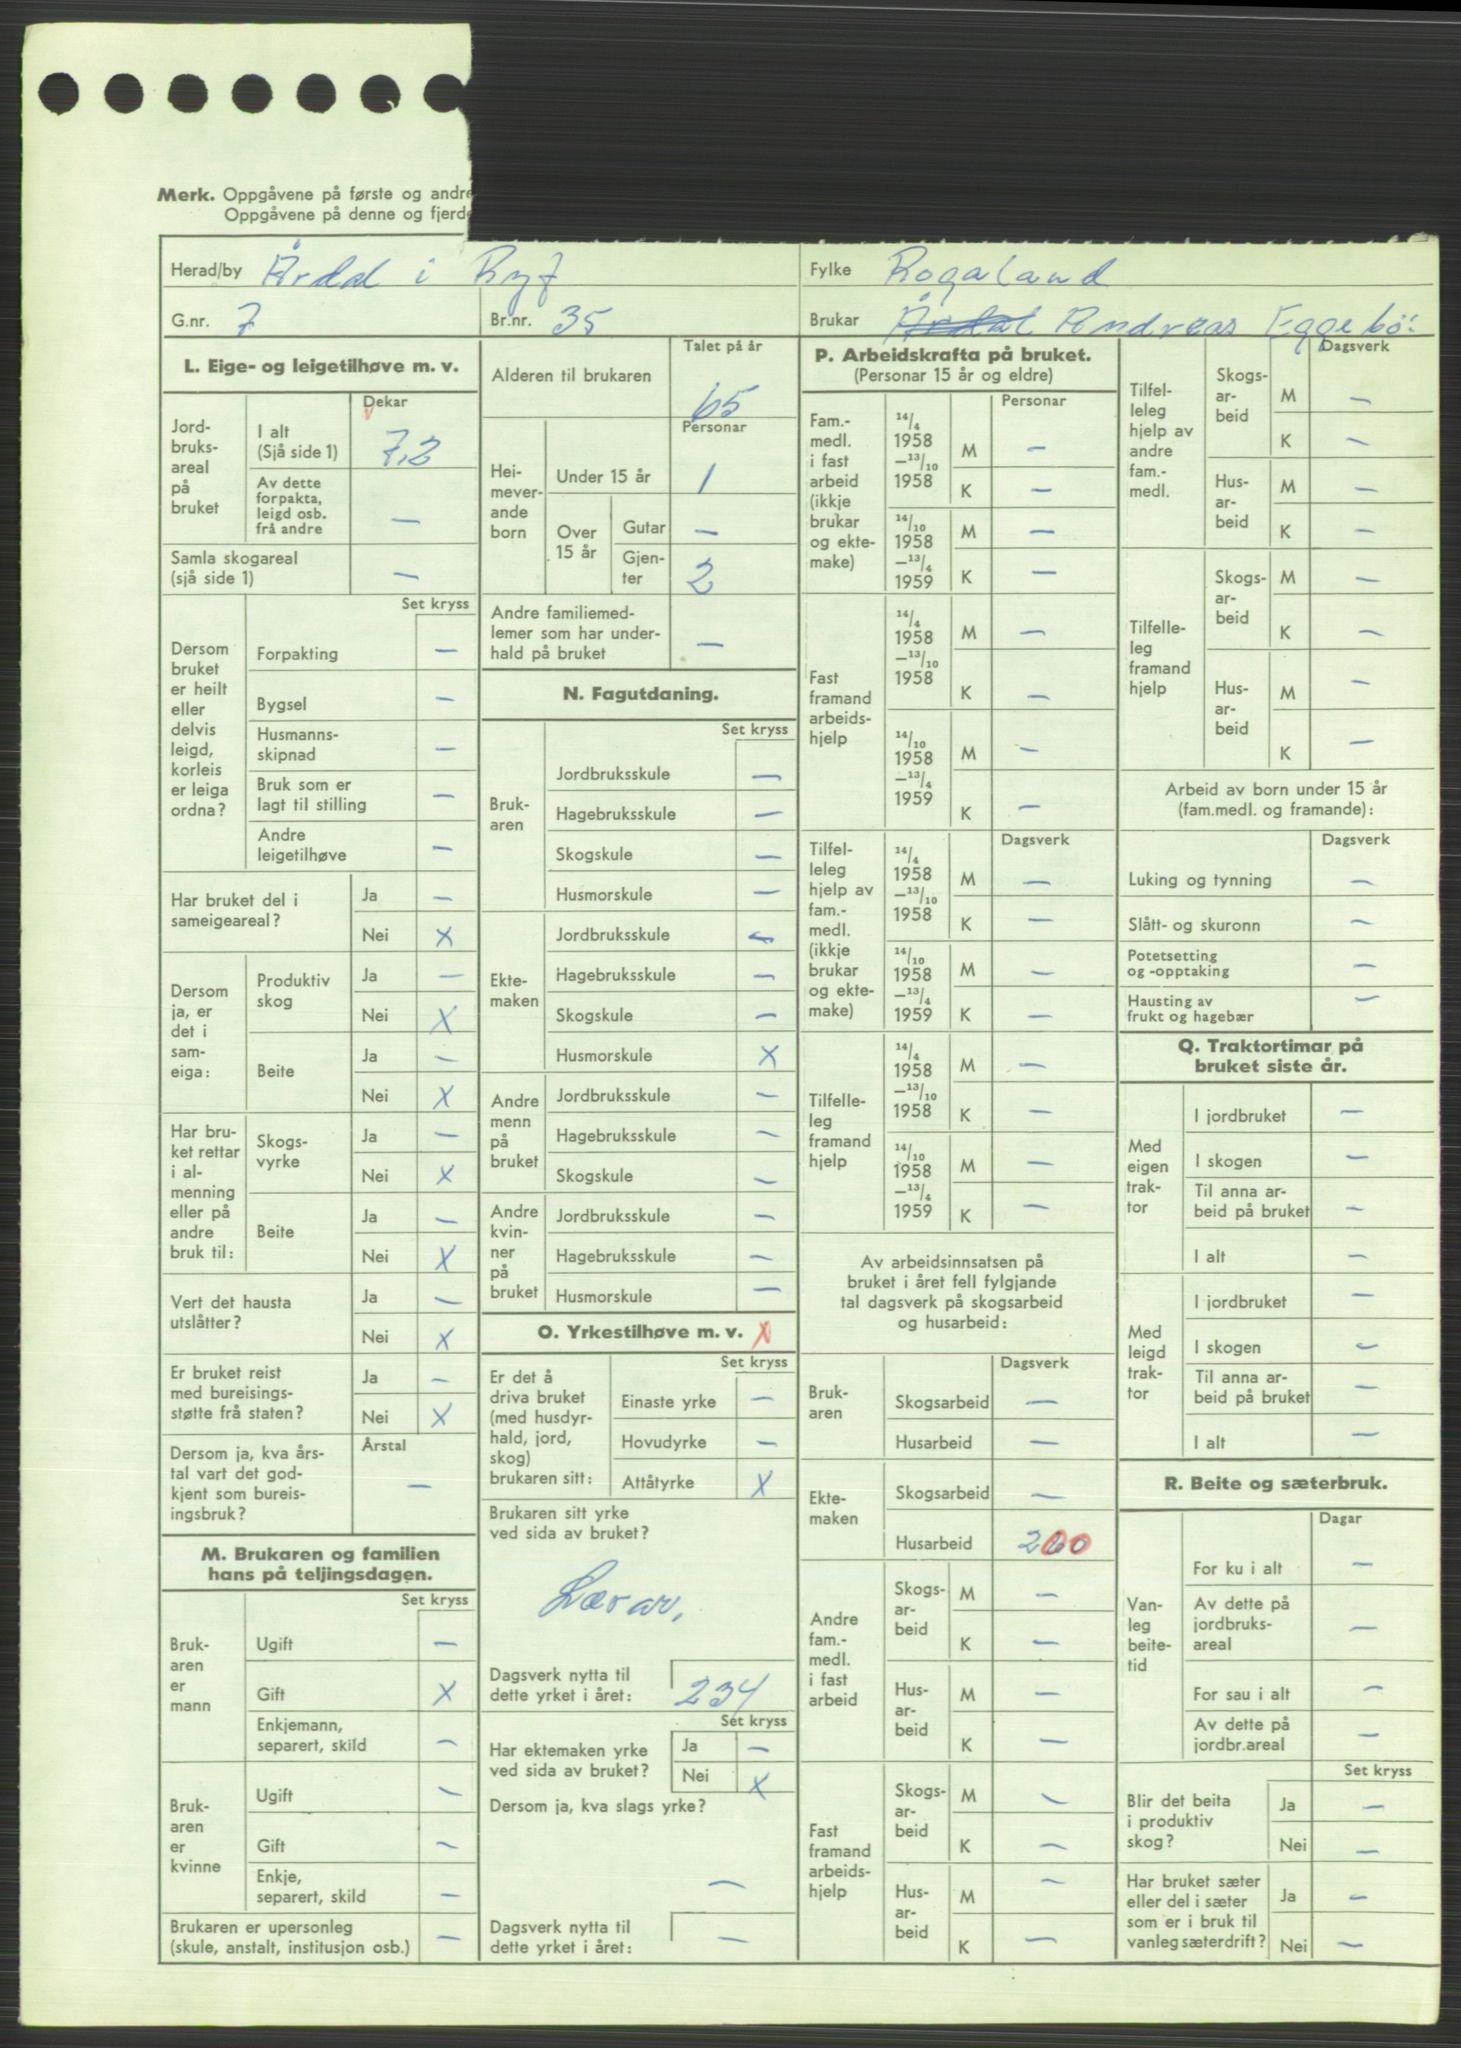 Merk. Oppgåvene på første og andre
Oppgåvene på denne og fjerde
Herad/by Årdal i Ryf
Fylke Rogaland
G.nr. 7
Br.nr. 35
Brukar Årdal Andreas Eggebö
L. Eige- og leigetilhøve m. v.
Dekar
Jord-
bruks-
areal
på
bruket
I alt
(Sjå side 1) 7,2
Av dette
forpakta,
leigd osb.
frå andre —
Samla skogareal
(sjå side 1) —
Set kryss
Dersom
bruket
er heilt
eller
delvis
leigd,
korleis
er leiga
ordna?
Forpakting —
Bygsel —
Husmanns-
skipnad —
Bruk som er
lagt til stilling —
Andre
leigetilhøve —
Har bruket del i
sameigeareal?
Ja —
Nei X
Dersom
ja, er
det i
sam-
eiga:
Produktiv
skog
Ja —
Nei X
Beite
Ja —
Nei X
Har bru-
ket rettar
i al-
menning
eller på
andre
bruk til:
Skogs-
vyrke
Ja —
Nei X
Beite
Ja —
Nei X
Vert det hausta
utslåtter?
Ja —
Nei X
Er bruket reist
med bureisings-
støtte frå staten?
Ja —
Nei X
Dersom ja, kva års-
tal vart det god-
kjent som bureis-
ingsbruk?
Årstal
—
M. Brukaren og familien
hans på teljingsdagen.
Set kryss
Bruk-
aren
er
mann
Ugift —
Gift X
Enkjemann,
separert, skild —
Bruk-
aren
er
kvinne
Ugift —
Gift —
Enkje,
separert, skild —
Brukaren er upersonleg
(skule, anstalt, institusjon osb.) —
Talet på år
Alderen til brukaren 65
Personar
Hei-
mever-
ande
born
Under 15 år 1
Over
15 år
Gutar —
Gjen-
ter 2
Andre familiemed-
lemer som har under-
hald på bruket —
N. Fagutdaning.
Set kryss
Bruk-
aren
Jordbruksskule —
Hagebruksskule —
Skogskule —
Husmorskule —
Ekte-
maken
Jordbruksskule —
Hagebruksskule —
Skogskule —
Husmorskule X
Andre
menn
på
bruket
Jordbruksskule —
Hagebruksskule —
Skogskule —
Andre
kvin-
ner
på
bruket
Jordbruksskule —
Hagebruksskule —
Husmorskule —
O. Yrkestilhøve m. v. X
Set kryss
Er det å
driva bruket
(med husdyr-
hald, jord,
skog)
brukaren sitt:
Einaste yrke —
Hovudyrke —
Attåtyrke X
Brukaren sitt yrke
ved sida av bruket?
Lærar.
Dagsverk nytta til
dette yrket i året: 234
Set kryss
Har ektemaken yrke
ved sida av bruket?
Ja —
Nei X
Dersom ja, kva slags yrke?
—
Dagsverk nytta til
dette yrket i året: —
P. Arbeidskrafta på bruket.
(Personar 15 år og eldre)
Personar
Fam.-
medl.
i fast
arbeid
(ikkje
brukar
og ekte-
make)
14/4
1958
—13/10
1958
M —
K —
14/10
1958
—13/4
1959
M —
K —
Fast
framand
arbeids-
hjelp
14/4
1958
—13/10
1958
M —
K —
14/10
1958
—13/4
1959
M —
K —
Dagsverk
Tilfel-
leleg
hjelp av
fam.-
medl.
(ikkje
brukar
og ekte-
make)
14/4
1958
—13/10
1958
M —
K —
14/10
1958
—13/4
1959
M —
K —
Tilfelle-
leg
framand
hjelp
14/4
1958
—13/10
1958
M —
K —
14/10
1958
—13/4
1959
M —
K —
Av arbeidsinnsatsen på
bruket i året fell fylgjande
tal dagsverk på skogsarbeid
og husarbeid:
Dagsverk
Bruk-
aren
Skogsarbeid —
Husarbeid —
Ekte-
maken
Skogsarbeid —
Husarbeid 200
Andre
fam.-
medl.
i fast
arbeid
Skogs-
ar-
beid
M —
K —
Hus-
ar-
beid
M —
K —
Fast
framand
arbeids-
hjelp
Skogs-
ar-
beid
M —
K —
Hus-
ar-
beid
M —
K —
Dagsverk
Tilfel-
leleg
hjelp av
andre
fam.-
medl.
Skogs-
ar-
beid
M —
K —
Hus-
ar-
beid
M —
K —
Tilfelle-
leg
framand
hjelp
Skogs-
ar-
beid
M —
K —
Hus-
ar-
beid
M —
K —
Arbeid av born under 15 år
(fam.medl. og framande):
Dagsverk
Luking og tynning —
Slått- og skuronn —
Potetsetting
og -opptaking —
Hausting av
frukt og hagebær —
Q. Traktortimar på
bruket siste år.
Med
eigen
trak-
tor
I jordbruket —
I skogen —
Til anna ar-
beid på bruket —
I alt —
Med
leigd
trak-
tor
I jordbruket —
I skogen —
Til anna ar-
beid på bruket —
I alt —
R. Beite og sæterbruk.
Dagar
Van-
leg
beite-
tid
For ku i alt —
Av dette på
jordbruks-
areal —
For sau i alt —
Av dette på
jordbr.areal —
Set kryss
Blir det beita
i produktiv
skog?
Ja —
Nei —
Har bruket sæter
eller del i sæter
som er i bruk til
vanleg sæterdrift?
Ja —
Nei —